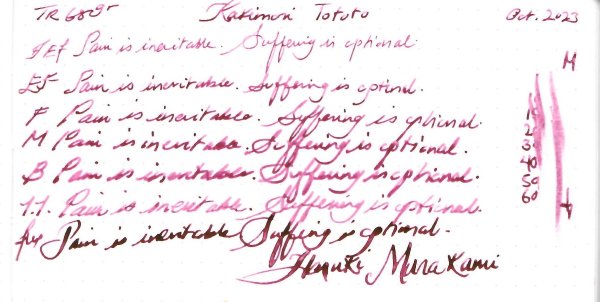 TR 68gr Kakimori Tototo Oct. 2023
JEF Pain is inevitable. Suffering is optional.
EF Pain is inevitable. Suffering is optional.
F Pain is inevitable. Suffering is optional.
M Pain is inevitable. Suffering is optional.
B Pain is inevitable. Suffering is optional.
1.1. Pain is inevitable. Suffering is optional.
Pain is inevitable Suffering is optional.
Haruki Murakami
M
10
20
30
40
50
60